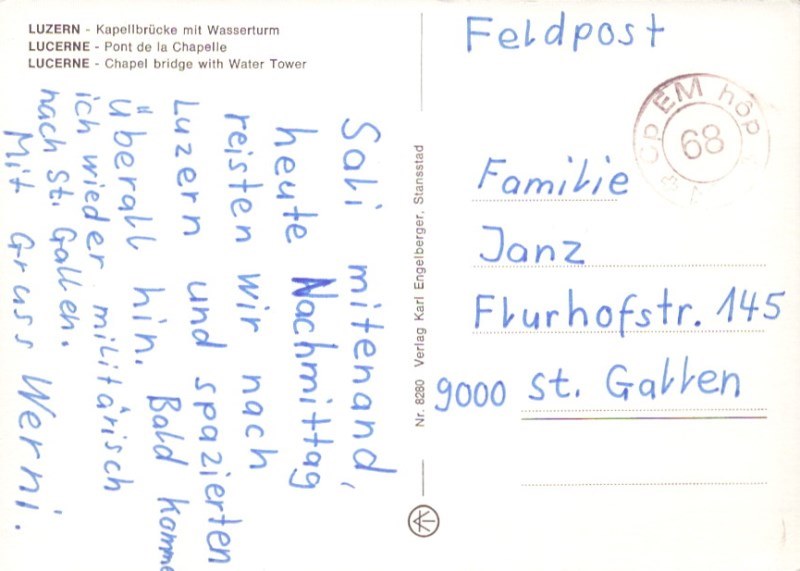 LUZERN - Kapellbrücke mit Wasserturm
LUCERNE - Pont de la Chapelle
LUCERNE - Chapel bridge with Water Tower
Sali mitenand,
heute Nachmittag
reisten wir nach
Luzern und spazierten
überall hin. Bald komme
ich wieder militärisch
nach St. Gallen.
Mit Gruss Werni.
Nr. 8280 Verlag Karl Engelberger, Stansstad
Feldpost
EM hôp
68
Familie
Janz
Flurhofstr. 145
9000 St. Gallen